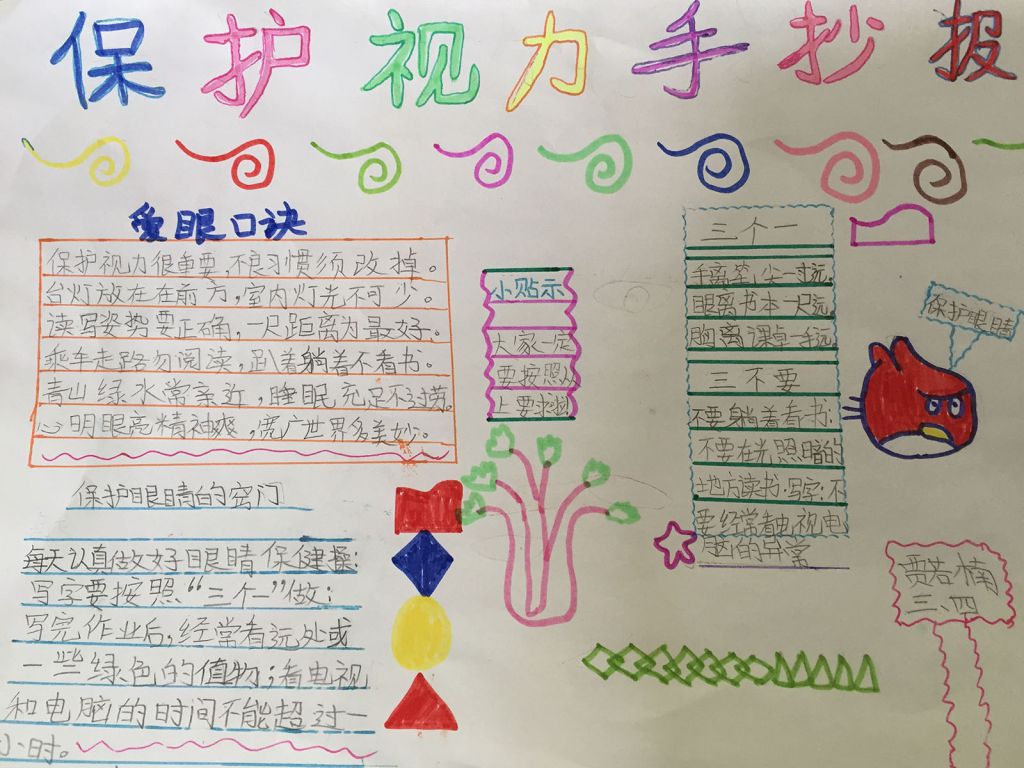 保护视力手抄报
爱眼口诀
保护视力很重要,不良习惯须改掉。
台灯放在在前方,室内灯光不可少。
读写姿势要正确,一尺距离为最好。
乘车走路勿阅读,趴着躺着不看书。
青山绿水常亲近,睡眠充足不过劳。
心明眼亮精神爽,宽广世界多美妙。
保护眼睛的窍门
每天认真做好眼睛保健操;
写字要按照“三个一”做;
写完作业后,经常看远处或
一些绿色的植物;看电视
和电脑的时间不能超过一
小时。
小贴示
大家一定
要按照以
上要求
三个一
手离笔尖一寸远
眼离书本一尺远
胸离课桌一手远
三不要
不要躺着看书
不要在光照暗的
地方读书.写字;不
要经常看电视电
脑的异常
保护眼睛
楠
三、四